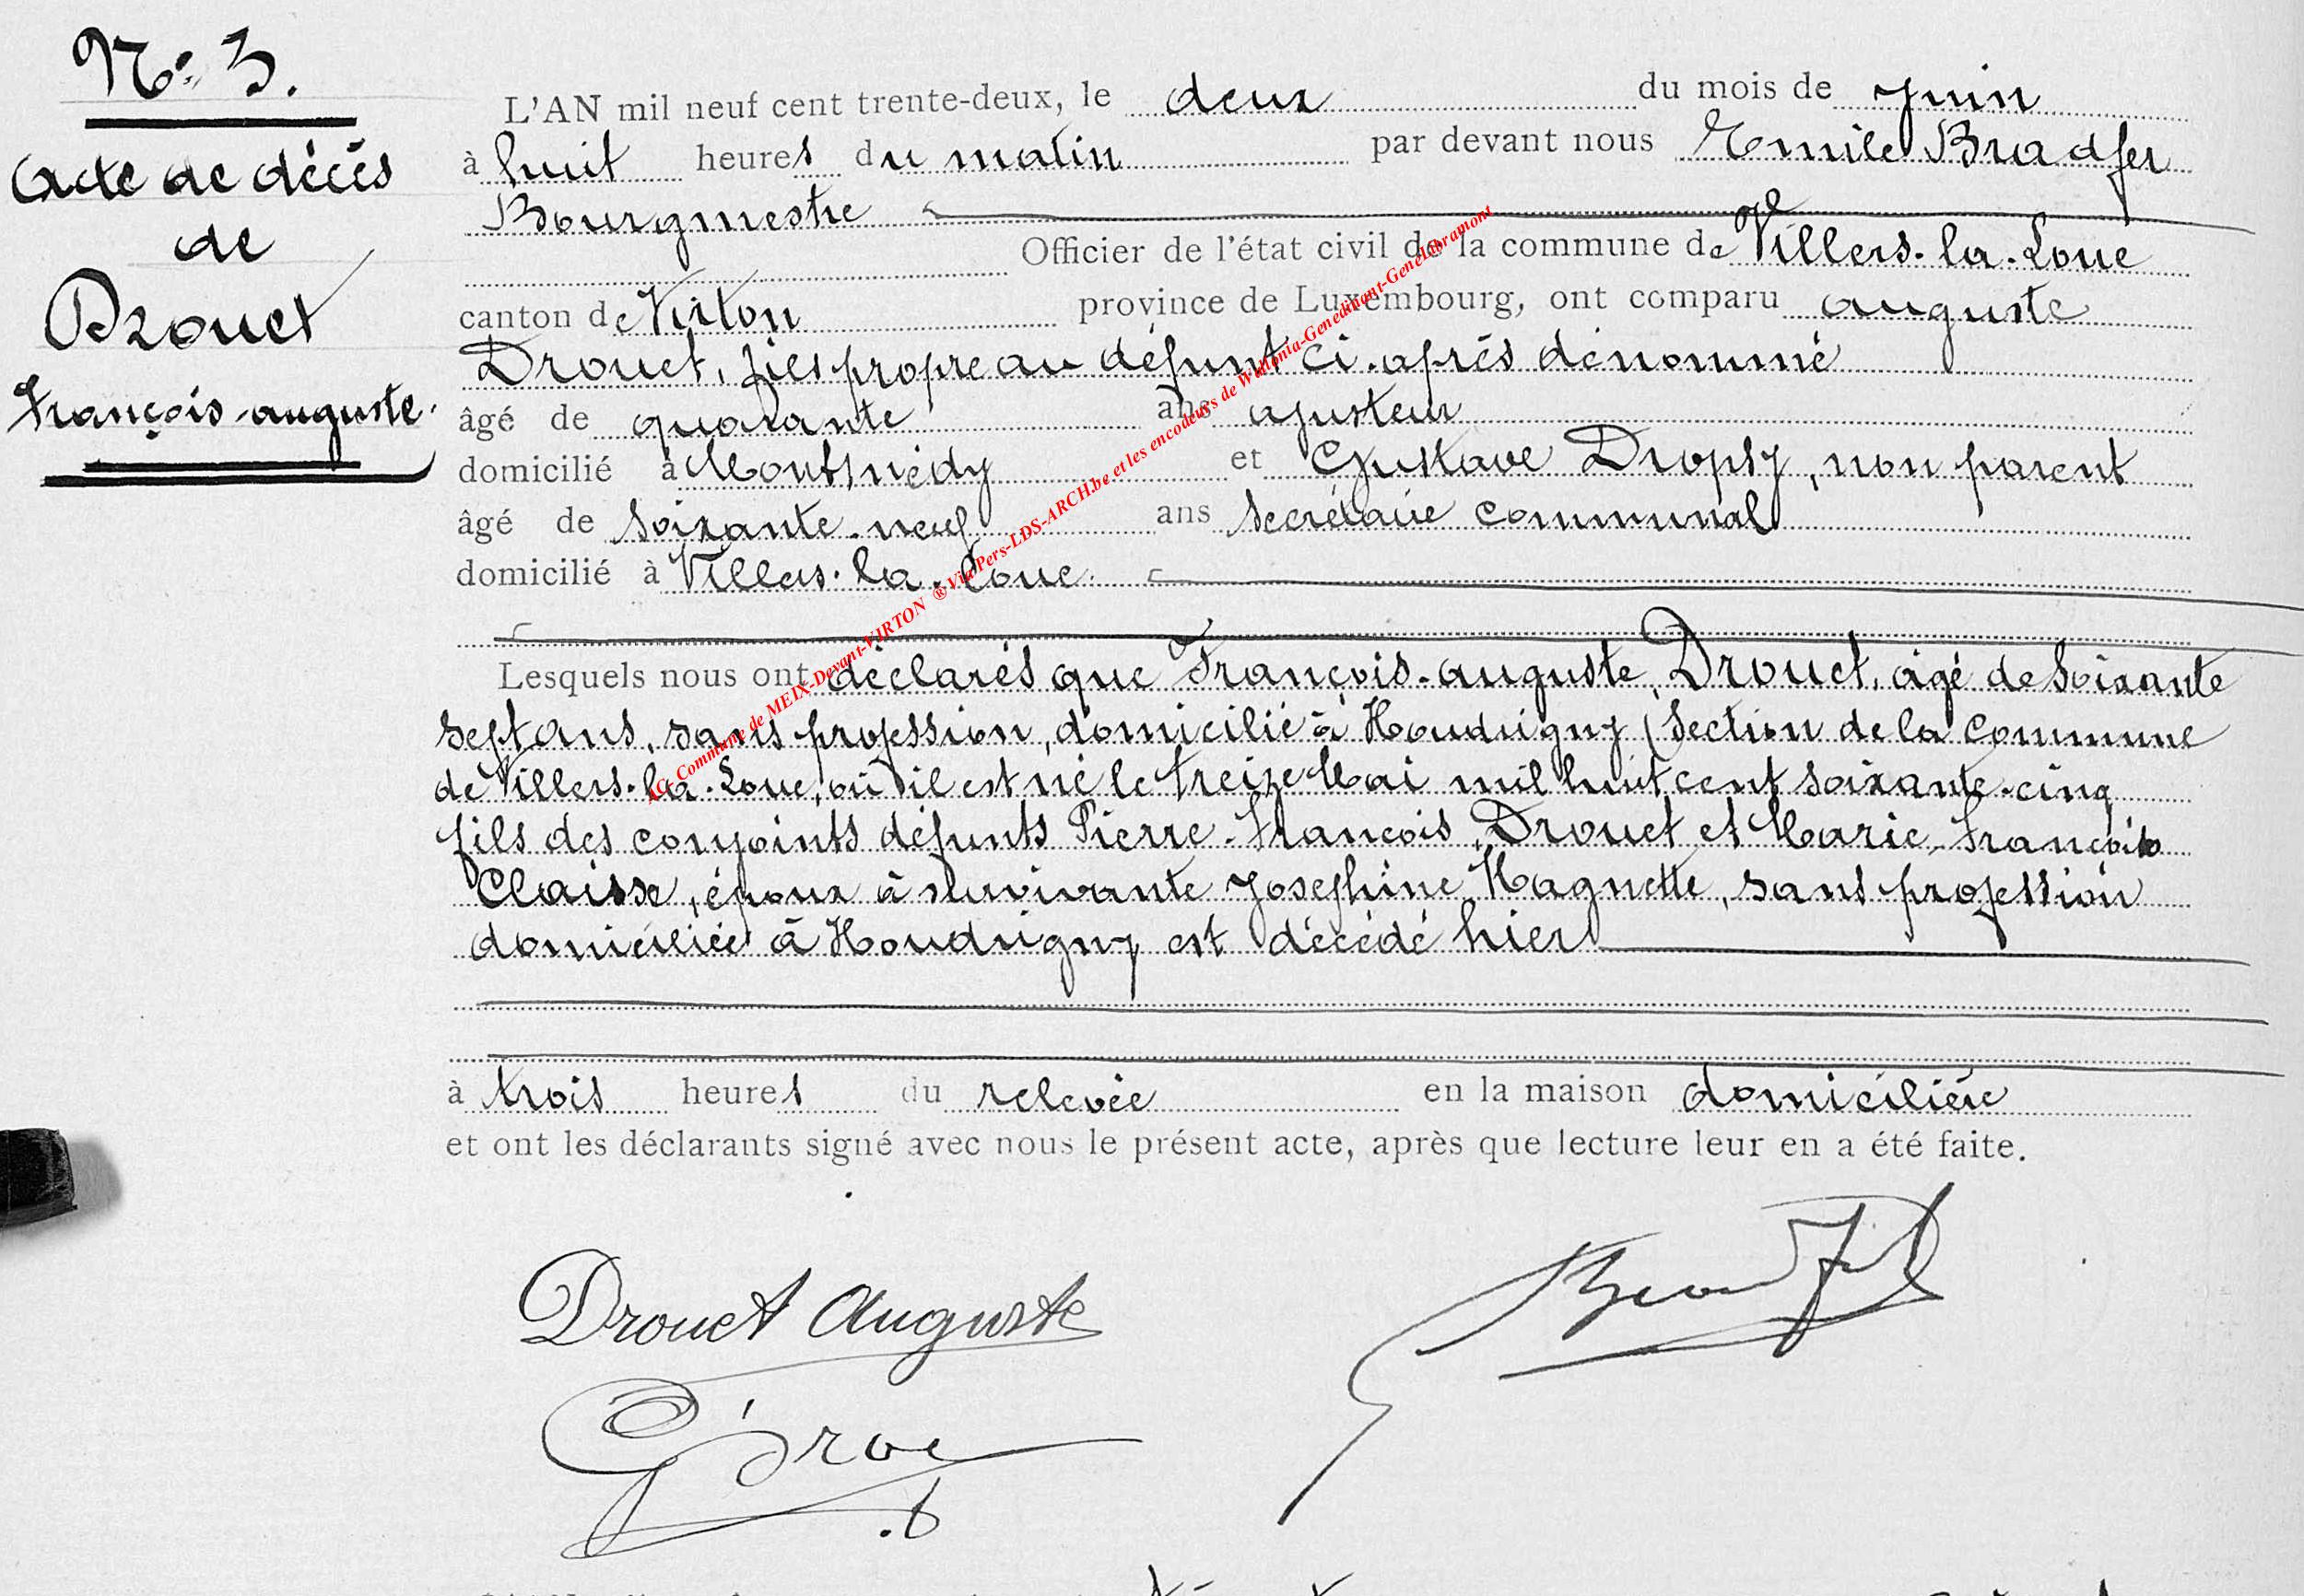 N° 3.
Acte de décès
de
Drouet
François-auguste.
L'AN mil neuf cent trente-deux, le deux du mois de juin
à huit heures du matin par devant nous Emile Bradfer
Bourgmestre
Officier de l'état civil de la commune de Villers-la-Loue
canton de Virton province de Luxembourg, ont comparu auguste
Drouet, fils propre au défunt ci-après dénommé
âgé de quarante ans ajusteur
domicilié à Montmédy et Gustave Dropsy, non parent
âgé de soixante-neuf ans secrétaire communal
domicilié à Villers-la-Loue.
Lesquels nous ont déclarés que François-auguste, Drouet, âgé de soixante
sept ans, sans profession, domicilié à Houdrigny (section de la commune
de Villers-la-Loue, où il est né le treize Mai mil huit cent soixante-cinq
fils des conjoints défunts Pierre-François, Drouet et Marie-François
Claisse, époux à survivante Joséphine Magnette, sans profession
domiciliée à Houdrigny est décédé hier
à trois heures du relevée en la maison domiciliére
et ont les déclarants signé avec nous le présent acte, après que lecture leur en a été faite.
Drouet Auguste
AC Commune de MEIX-Devant-VIRTON ® Via Pers-LDS-ARCH.be et les encodeurs de Wallonia-Genedinant-GeneLibramont